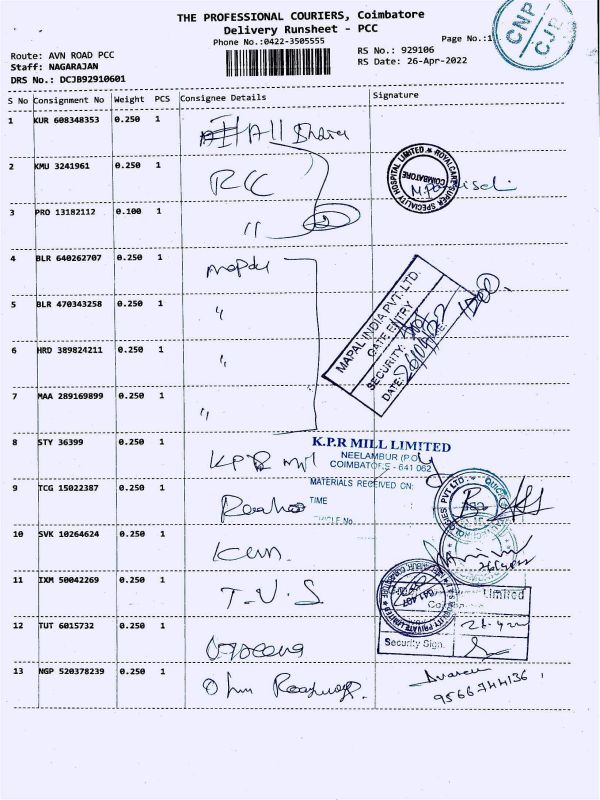 THE PROFESSIONAL COURIERS, Coimbatore
Delivery Runsheet - PCC
Phone No.:0422-3505555
Page No.:1
Route: AVN ROAD PCC
RS No.: 929106
Staff: NAGARAJAN
RS Date: 26-Apr-2022
DRS No.: DCJB92910601
CNP
CJB
S No Consignment No Weight PCS Consignee Details Signature
1 KUR 608348353 0.250 1 All Share
2 KMU 3241961 0.250 1 RCC
ROYALCARE SUPER SPECIALITY HOSPITAL LIMITED
COIMBATORE
3 PRO 13182112 0.100 1 "
4 BLR 640262707 0.250 1 Mapal
5 BLR 470343258 0.250 1 "
6 HRD 389824211 0.250 1 "
MAPAL INDIA PVT. LTD.
GATE ENTRY
SECURITY:
DATE: 26/04/22
7 MAA 289169899 0.250 1 "
8 STY 36399 0.250 1 KPR Mill
K.P.R MILL LIMITED
NEELAMBUR (P.O)
COIMBATORE - 641 062
MATERIALS RECEIVED ON:
TIME
VEHICLE No.
9 TCG 15022387 0.250 1
10 SVK 10264624 0.250 1
11 IXM 50042269 0.250 1 T.V.S
Limited
Security Sign.
12 TUT 6015732 0.250 1
13 NGP 520378239 0.250 1 Ohm Roadways.
9566744136